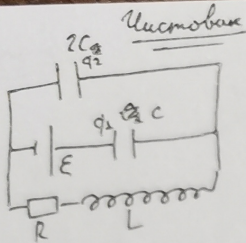 Чистовик
2C
q2
q1 C
ε
R L